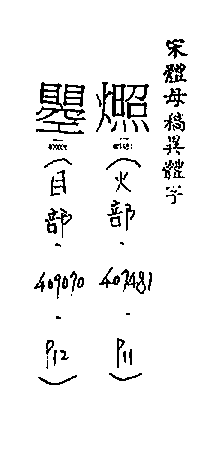 宋體母稿異體字
(火部.407481.P11)
瞾
(目部.409070.P12)